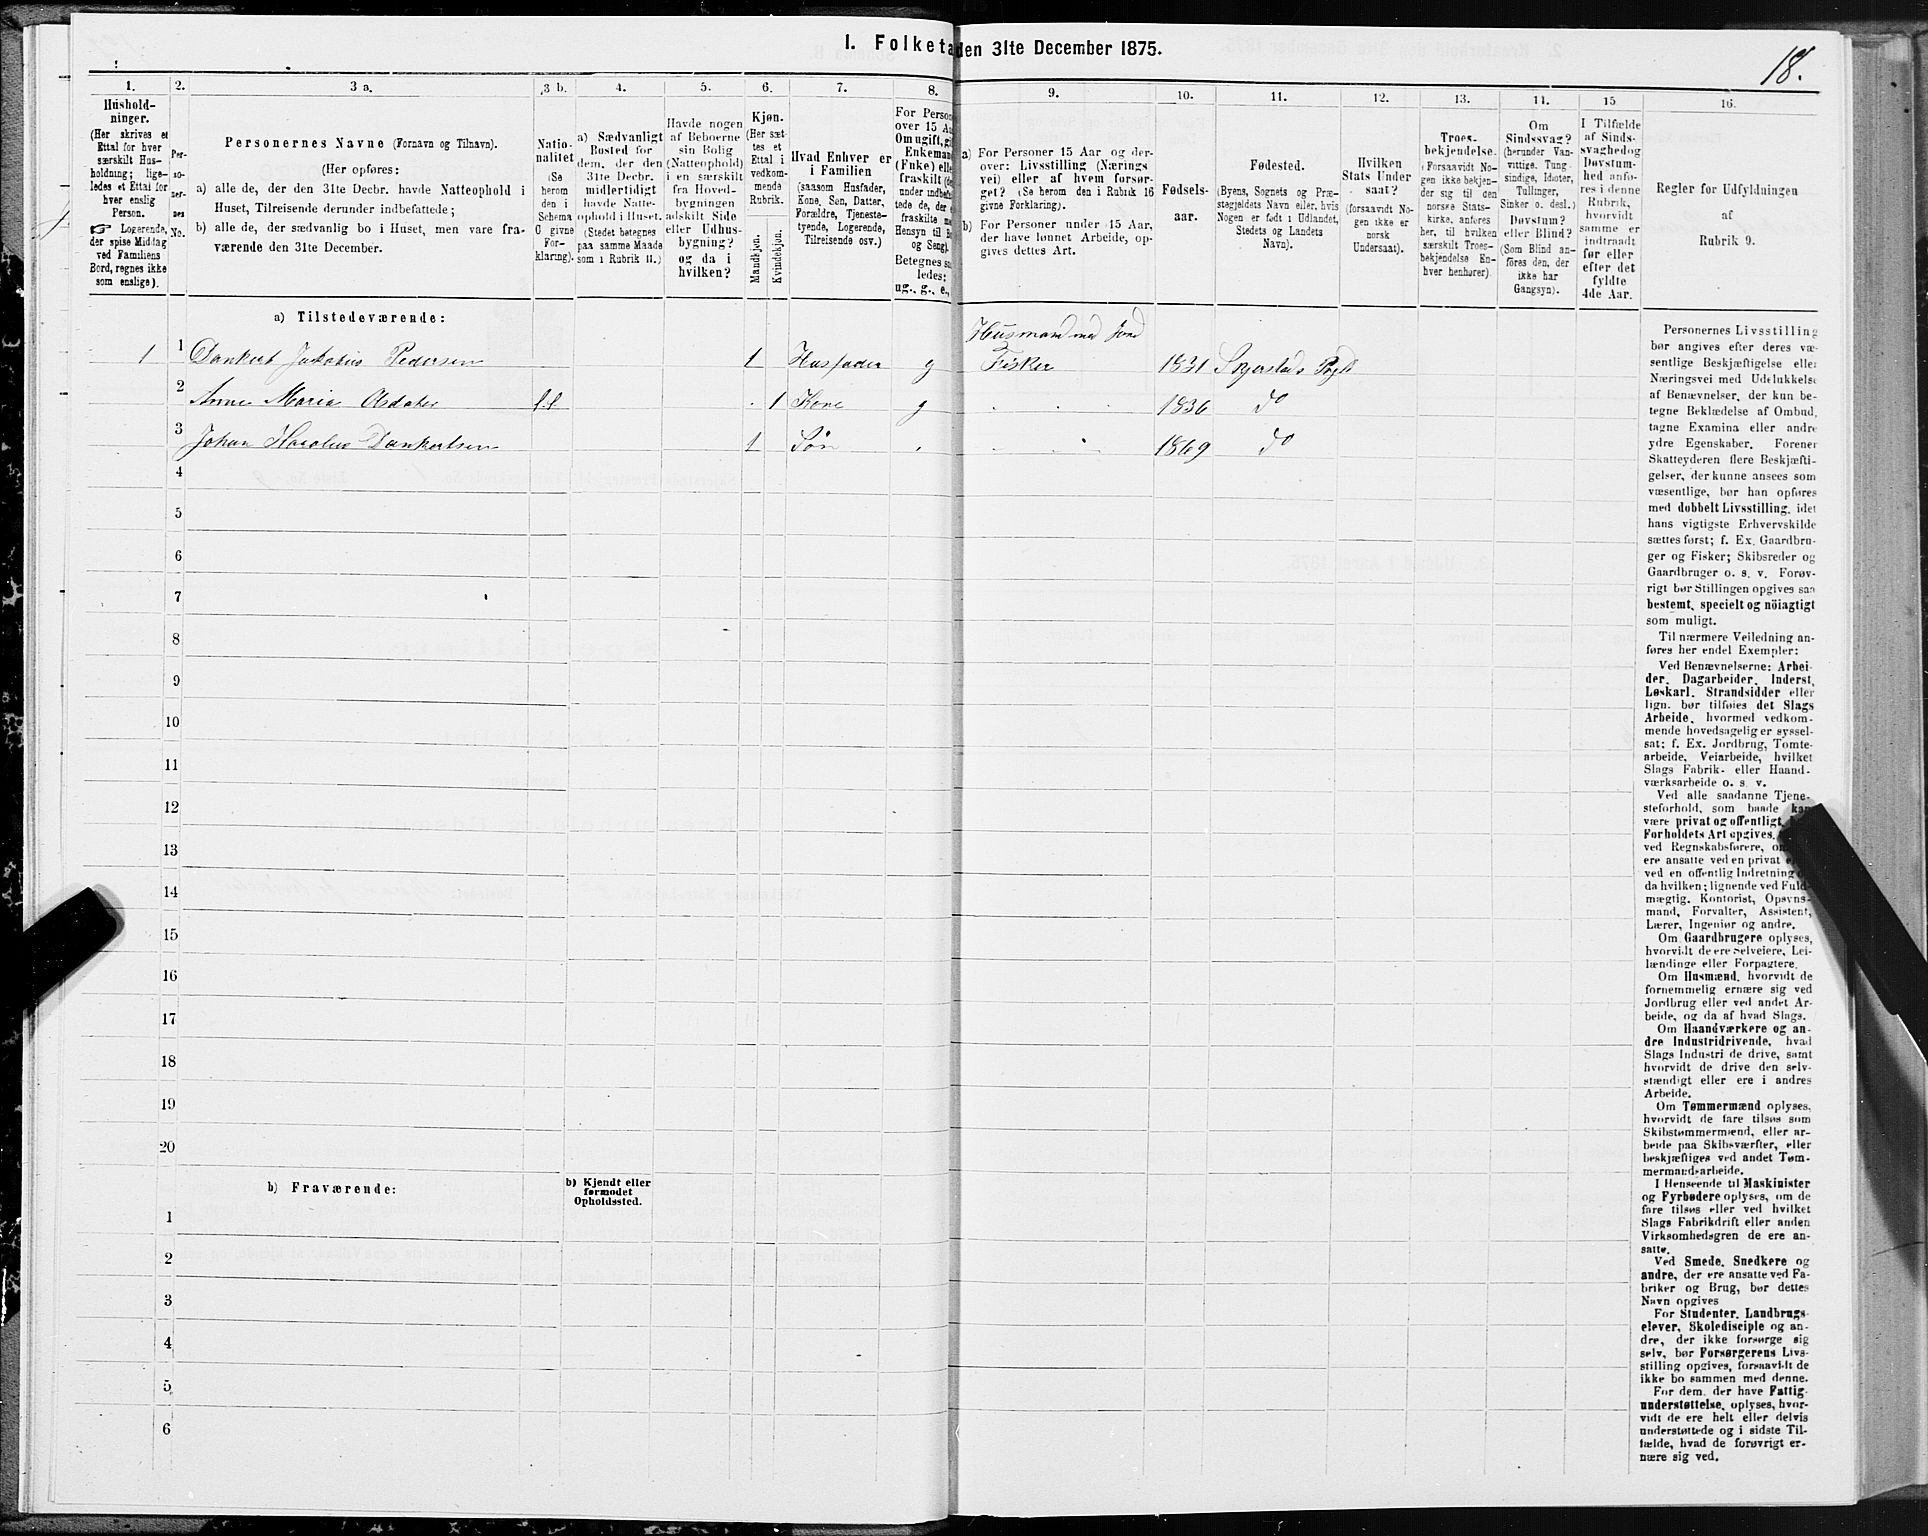 I. Folketa den 31te December 1875.
18.
1.
Hushold-
ninger.
(Her skrives et
Ettal for hver
særskilt Hus-
holdning; lige-
ledes et Ettal for
hver enslig
Person.
☞ Logerende,
der spise Middag
ved Familiens
Bord, regnes ikke
som enslige).
2.
Per-
so-
ner-
nes
No.
3 a.
Personernes Navne (Fornavn og Tilnavn).
(Her opføres:
a) alle de, der den 31te Decbr. havde Natteophold i
Huset, Tilreisende derunder indbefattede;
b) alle de, der sædvanlig bo i Huset, men vare fra-
værende den 31te December.
3 b.
Natio-
nalitet
(Se
herom
den i
Schema
C givne
For-
klaring).
4.
a) Sædvanligt
Bosted for
dem, der den
31te Decbr.
midlertidigt
havde Natte-
ophold i Huset.
(Stedet betegnes
paa samme Maade
som i Rubrik 11.)
5.
Havde nogen
af Beboerne
sin Bolig
(Natteophold)
i en særskilt
fra Hoved-
bygningen
adskilt Side
eller Udhus-
bygning?
og da i
hvilken?
6.
Kjøn.
(Her sæt-
tes et
Ettal i
vedkom-
mende
Rubrik.
Mandkjøn.
Kvindekjøn.
7.
Hvad Enhver er
i Familien
(saasom Husfader,
Kone, Søn, Datter,
Forældre, Tjeneste-
tyende, Logerende,
Tilreisende osv.)
8.
For Person
over 15 Aa
Om ugift, gi
Enkeman
(Enke) elle
fraskilt (de
under indbefat
tede de, der e
fraskilte me
Hensyn til Bo
og Seng).
Betegnes saa
ledes:
ug., g., e.,
9.
a) For Personer 15 Aar og der-
over: Livsstilling (Nærings
vei) eller af hvem forsør-
get? (Se herom den i Rubrik 16
givne Forklaring).
b) For Personer under 15 Aar,
der have lønnet Arbeide, op-
gives dettes Art.
10.
Fødsels-
aar.
11.
Fødested.
(Byens, Sognets og Præ-
stegjeldets Navn eller, hvis
Nogen er født i Udlandet,
Stedets og Landets
Navn).
12.
Hvilken
Stats Under
saat?
(forsaavidt No-
gen ikke er
norsk
Undersaat).
13.
Troes-
bekjendelse.
(Forsaavidt No-
gen ikke bekjen-
der sig til den
norske Stats-
kirke, anføres
her, til hvilken
særskilt Troes-
bekjendelse En-
hver henhører).
14.
Om
Sindssvag?
(herunder Van-
vittige, Tung-
sindige, Idioter,
Tullinger,
Sinker o. desl.)
Døvstum?
eller Blind?
(Som Blind an-
føres den, der
ikke har
Gangsyn).
15
I Tilfælde
af Sinds-
svaghed og
Døvstum-
hed anfø-
res i denne
Rubrik,
hvorvidt
samme er
indtraadt
før eller
efter det
fyldte
4de Aar.
16.
Regler for Udfyldningen
af
Rubrik 9.
a) Tilstedeværende:
Husmand med Jord
1 1 Dankert Jakobus Pedersen 1 Husfader g Fisker 1831 Skjerstads Pgld
2 Anne Maria Olsdater 1 Kone g 1836 do
3 Johan Nicolus Dankertsen 1 Søn 1869 do
4
5
6
7
8
9
10
11
12
13
14
15
16
17
18
19
20
b) Fraværende:
b) Kjendt eller
formodet
Opholdssted.
1
2
3
4
5
6
Personernes Livsstilling
bør angives efter deres væ-
sentlige Beskjæftigelse eller
Næringsvei med Udelukkelse
af Benævnelser, der kun be-
tegne Beklædelse af Ombud,
tagne Examina eller andre
ydre Egenskaber. Forener
Skatteyderen flere Beskjæfti-
gelser, der kunne ansees som
væsentlige, bør han opføres
med dobbelt Livsstilling, idet
hans vigtigste Erhvervskilde
sættes først; f. Ex. Gaardbru-
ger og Fisker; Skibsreder og
Gaardbruger o. s. v. Forøv-
rigt bør Stillingen opgives saa
bestemt, specielt og nöiagtigt
som muligt.
Til nærmere Veiledning an-
føres her endel Exempler:
Ved Benævnelserne: Arbei-
der, Dagarbeider, Inderst,
Løskarl, Strandsidder eller
lign. bør tilføies det Slags
Arbeide, hvormed vedkom-
mende hovedsagelig er syssel-
sat; f. Ex. Jordbrug, Tomte-
arbeide, Veiarbeide, hvilket
Slags Fabrik- eller Haand-
værksarbeide o. s. v.
Ved alle saadanne Tjene-
steforhold, som baade kan
være privat og offentligt,
Forholdets Art opgives,
ved Regnskabsførere, om
ere ansatte ved en privat e
ved en offentlig Indretning
da hvilken; lignende ved Fuld-
mægtig, Kontorist, Opsyns-
mand, Forvalter, Assistent,
Lærer, Ingeniør og andre.
Om Gaardbrugere oplyses,
hvorvidt de ere Selveiere, Lei-
lændinge eller Forpagtere.
Om Husmænd, hvorvidt de
fornemmelig ernære sig ved
Jordbrug eller ved andet Ar-
beide, og da af hvad Slags.
Om Haandværkere og an-
dre Industridrivende, hvad
Slags Industri de drive, samt
hvorvidt de drive den selv-
stændigt eller ere i andres
Arbeide.
Om Tømmermænd oplyses,
hvorvidt de fare tilsøs som
Skibstømmermænd, eller ar-
beide paa Skibsværfter, eller
beskjæftiges ved andet Tøm-
mermandsarbeide.
I Henseende til Maskinister
og Fyrbødere oplyses, om de
fare tilsøs eller ved hvilket
Slags Fabrikdrift eller anden
Virksomhedsgren de ere an-
satte.
Ved Smede, Snedkere og
andre, der ere ansatte ved Fa-
briker og Brug, bør dettes
Navn opgives
For Studenter, Landbrugs-
elever, Skoledisciple og an-
dre, der ikke forsørge sig
selv, bør Forsørgerens Livs-
stilling opgives, forsaavidt de
ikke bo sammen med denne.
For dem, der have Fattig-
understøttelse, oplyses, hvor-
vidt de ere helt eller delvis
understøttede og i sidste Til-
fælde, hvad de forøvrigt er-
nære sig ved.